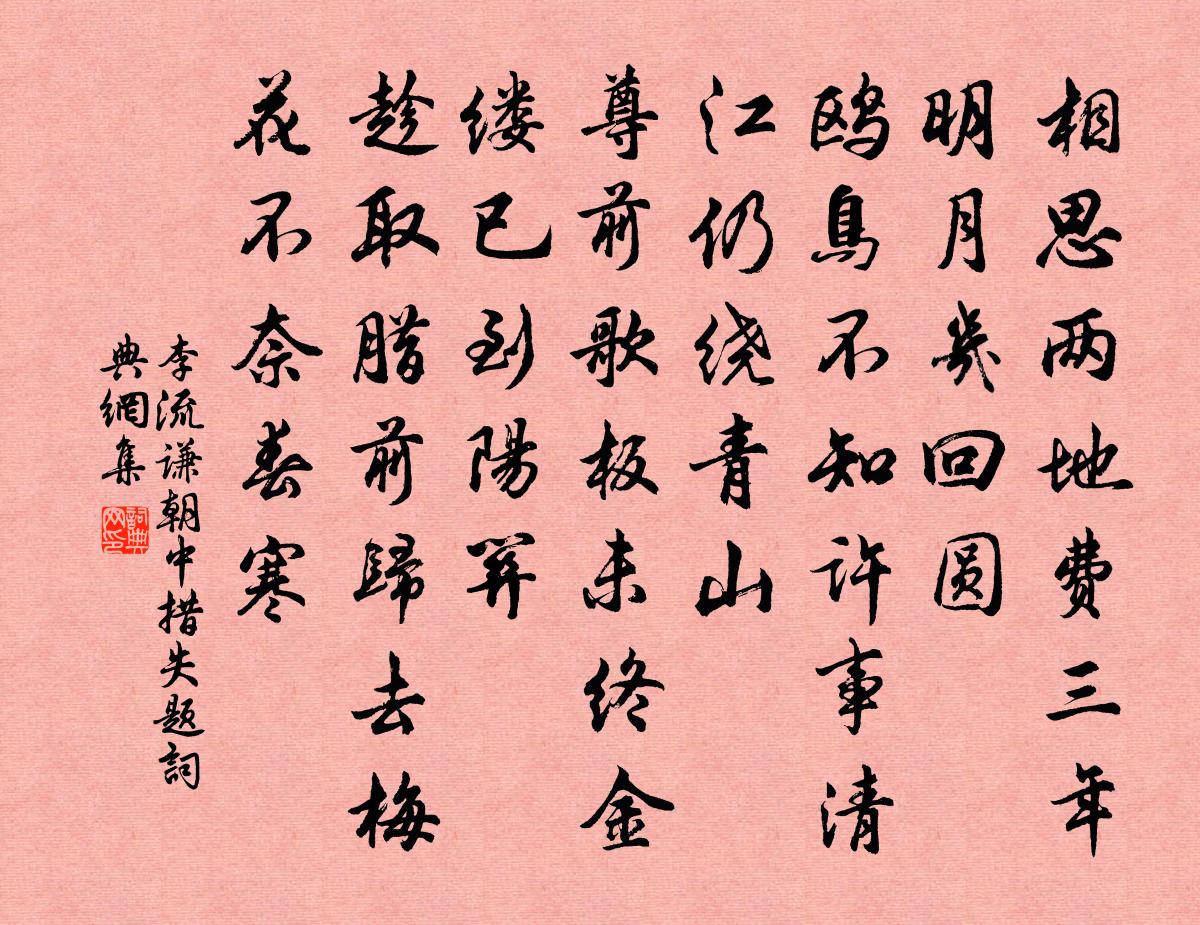 相思两地费三年
明月几回圆
鸥鳥不知许事清
江仍绕青山
尊前歌板未终金
缕已到陽関
趁取腊前歸去梅
花不奈春寒
李流谦朝中措失題詞
典網集
詞典网印